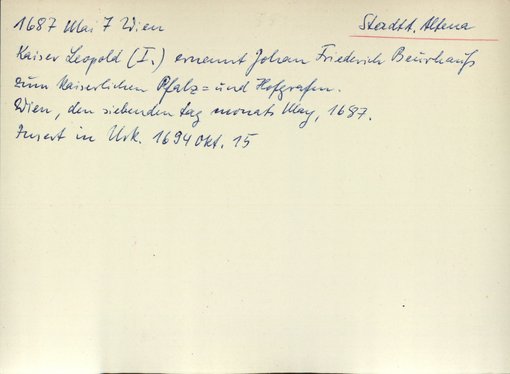 1687 Mai 7 Wien
Stadt. Altena
Kaiser Leopold (I.) ernennt Johan Friederich Beurhauß
zum kaiserlichen Pfalz= und Hofgrafen.
Wien, den siebenden tag monats May, 1687.
Insert in Urk. 1694 Okt. 15